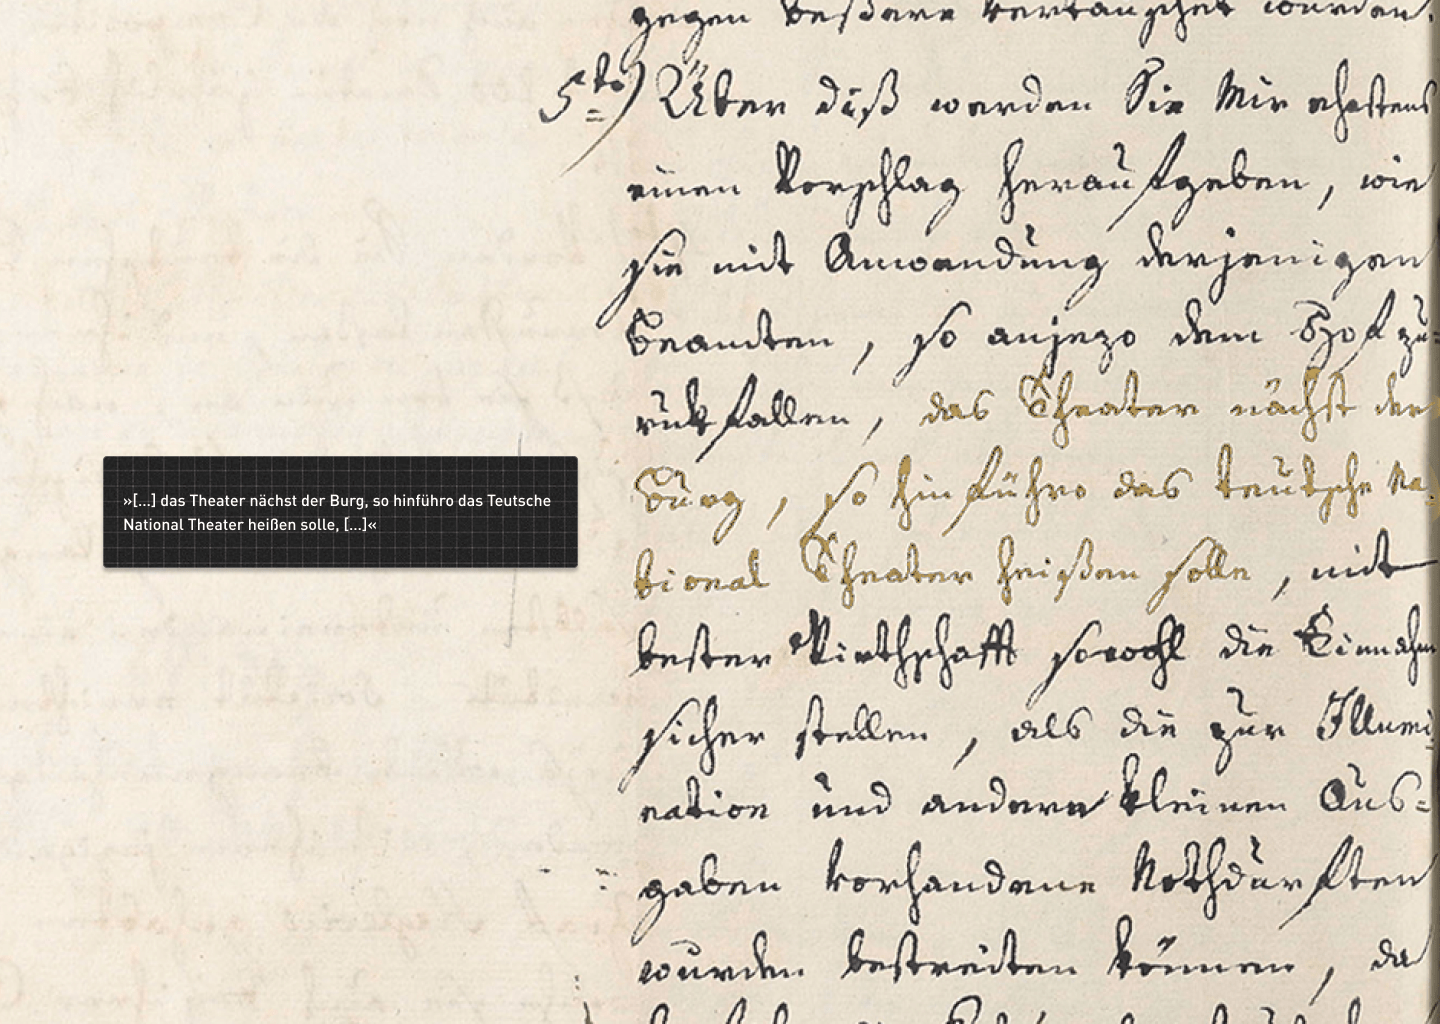 gegen beßere vertauschet wurden.
5to) Über diß werden Sie Mir ehestens
einen Vorschlag heraufgeben, wie
sie mit Anwendung derjenigen
Beamten, so anjezo dem Hof zu=
rückfallen, das Theater nächst der
Burg, so hinführo das teutsche Na-
tional Theater heißen solle, mit
bester Wirthschafft sowohl die Einnahm
sicher stellen, als die zur Illumi-
nation und andern kleinen Aus=
gaben vorhandene Nothdürften
wurden bestreiten können, da
»[...] das Theater nächst der Burg, so hinführo das Teutsche
National Theater heißen solle, [...]«